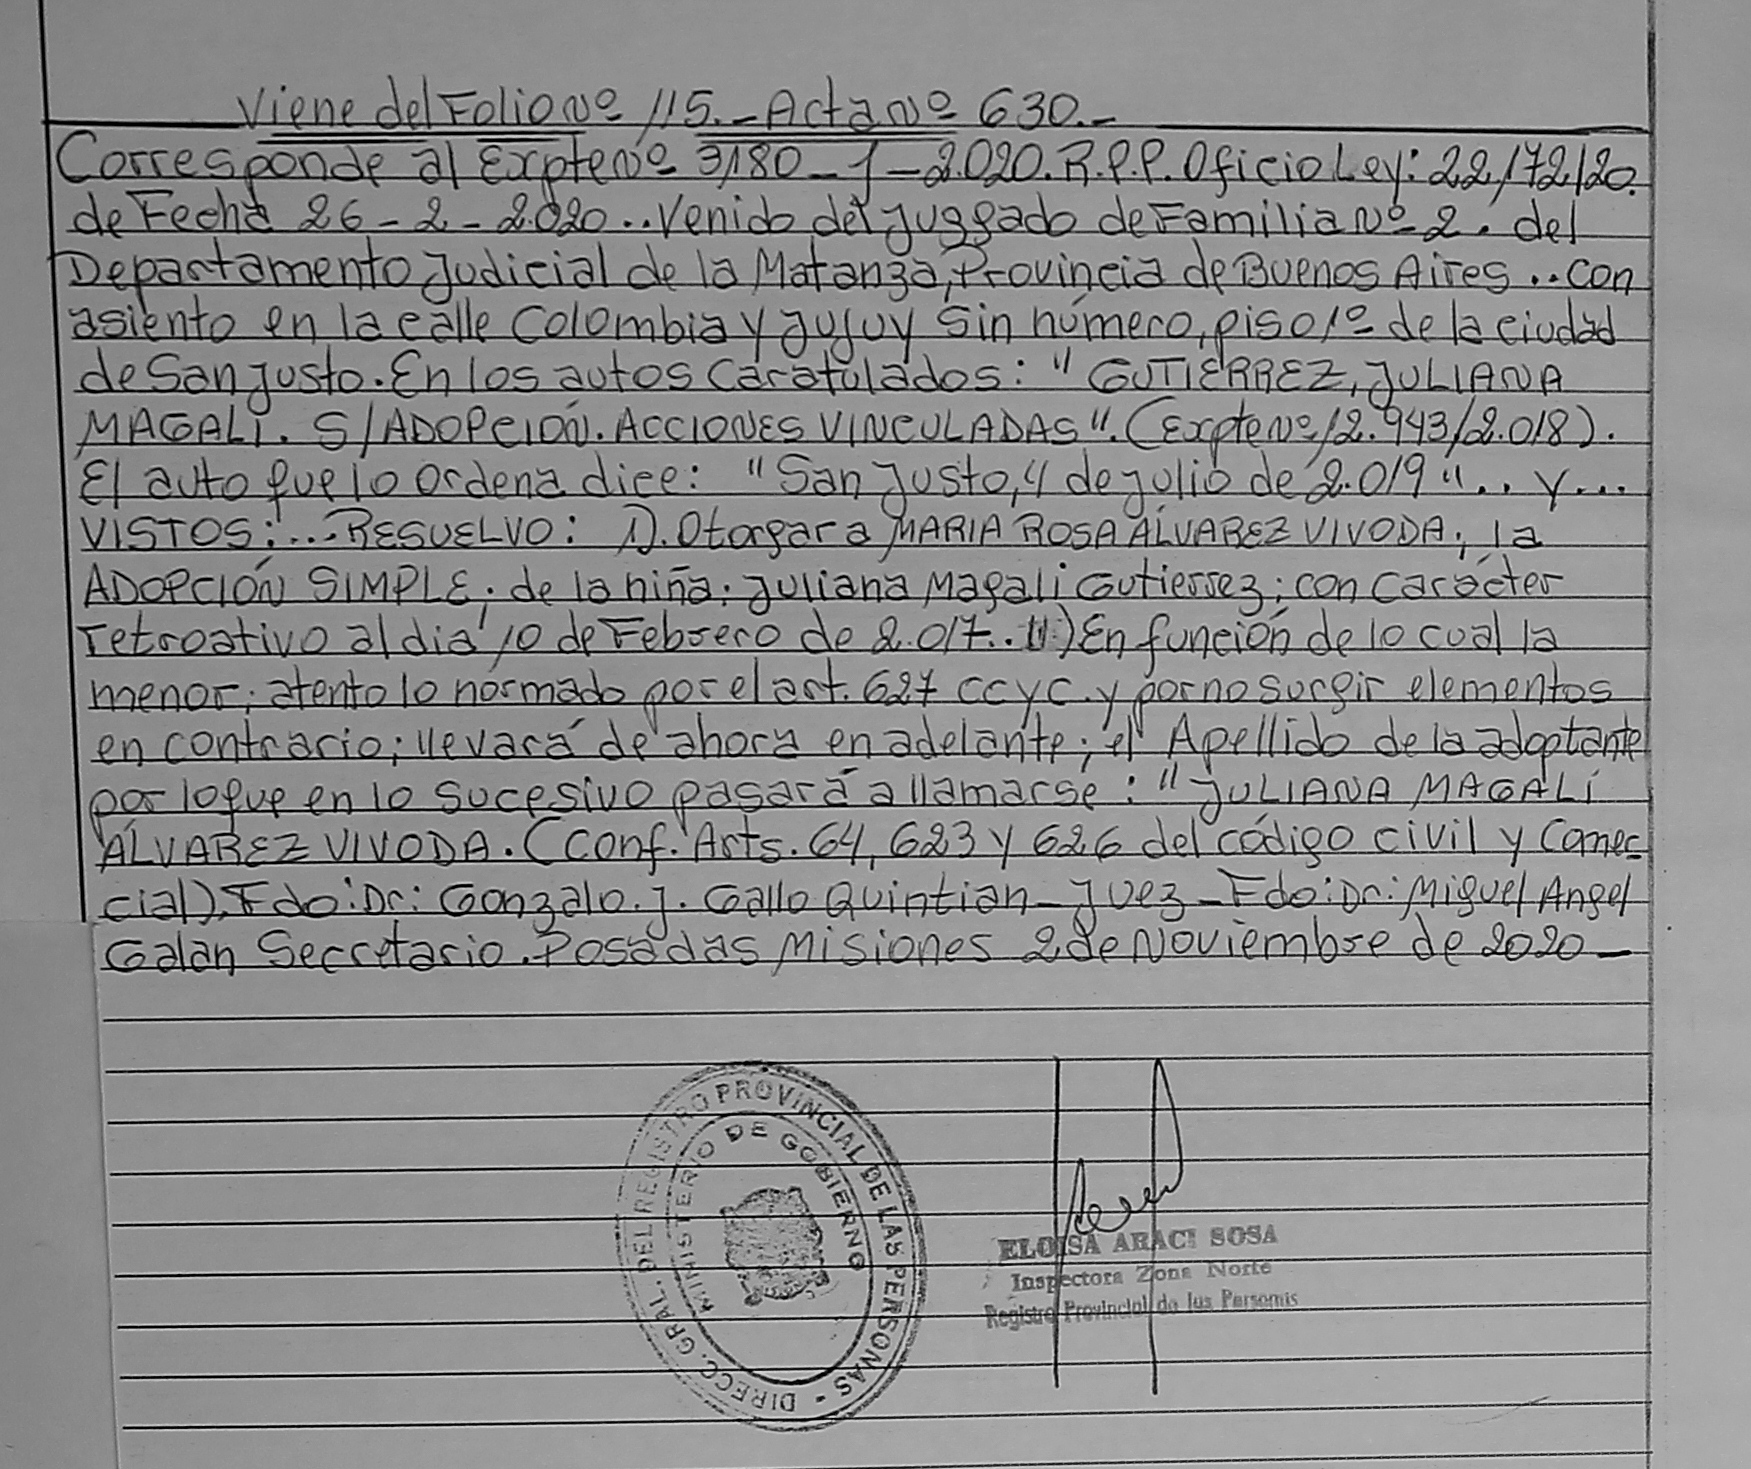 Viene del Folio Nº 115.- Acta Nº 630.-
Corresponde al Expte Nº 3180-J-2.020. R.P.P. Oficio Ley: 22172/20.
de Fecha 26-2-2.020.. Venido del Juzgado de Familia Nº 2. del
Departamento Judicial de la Matanza, Provincia de Buenos Aires.. con
asiento en la calle Colombia y Jujuy sin número, piso 1º de la ciudad
de San Justo. En los autos caratulados: "GUTIÉRREZ, JULIANA
MAGALÍ. S/ADOPCIÓN. ACCIONES VINCULADAS". (Expte Nº 12.943/2.018).
El auto que lo ordena dice: "San Justo, 4 de julio de 2.019".. Y...
VISTOS:... RESUELVO: 1). Otorgar a MARIA ROSA ÁLVAREZ VIVODA; la
ADOPCIÓN SIMPLE; de la niña: Juliana Magali Gutierrez; con carácter
retroativo al dia 10 de Febrero de 2.017.. II) En función de lo cual la
menor; atento lo normado por el art. 627 CCYC. y por no surgir elementos
en contrario; llevará de ahora en adelante; el Apellido de la adoptante
por lo que en lo sucesivo pasará a llamarse: "JULIANA MAGALÍ
ÁLVAREZ VIVODA. (Conf. Arts. 64, 623 y 626 del código civil y Comer-
cial). Fdo: Dr: Gonzalo. J. Gallo Quintian - Juez - Fdo: Dr: Miguel Angel
Galan Secretario. Posadas Misiones 2 de Noviembre de 2020 -
DIRECC. GRAL. DEL REGISTRO PROVINCIAL DE LAS PERSONAS -
MINISTERIO DE GOBIERNO
ELOISA ARACI SOSA
Inspectora Zona Norte
Registro Provincial de las Personas